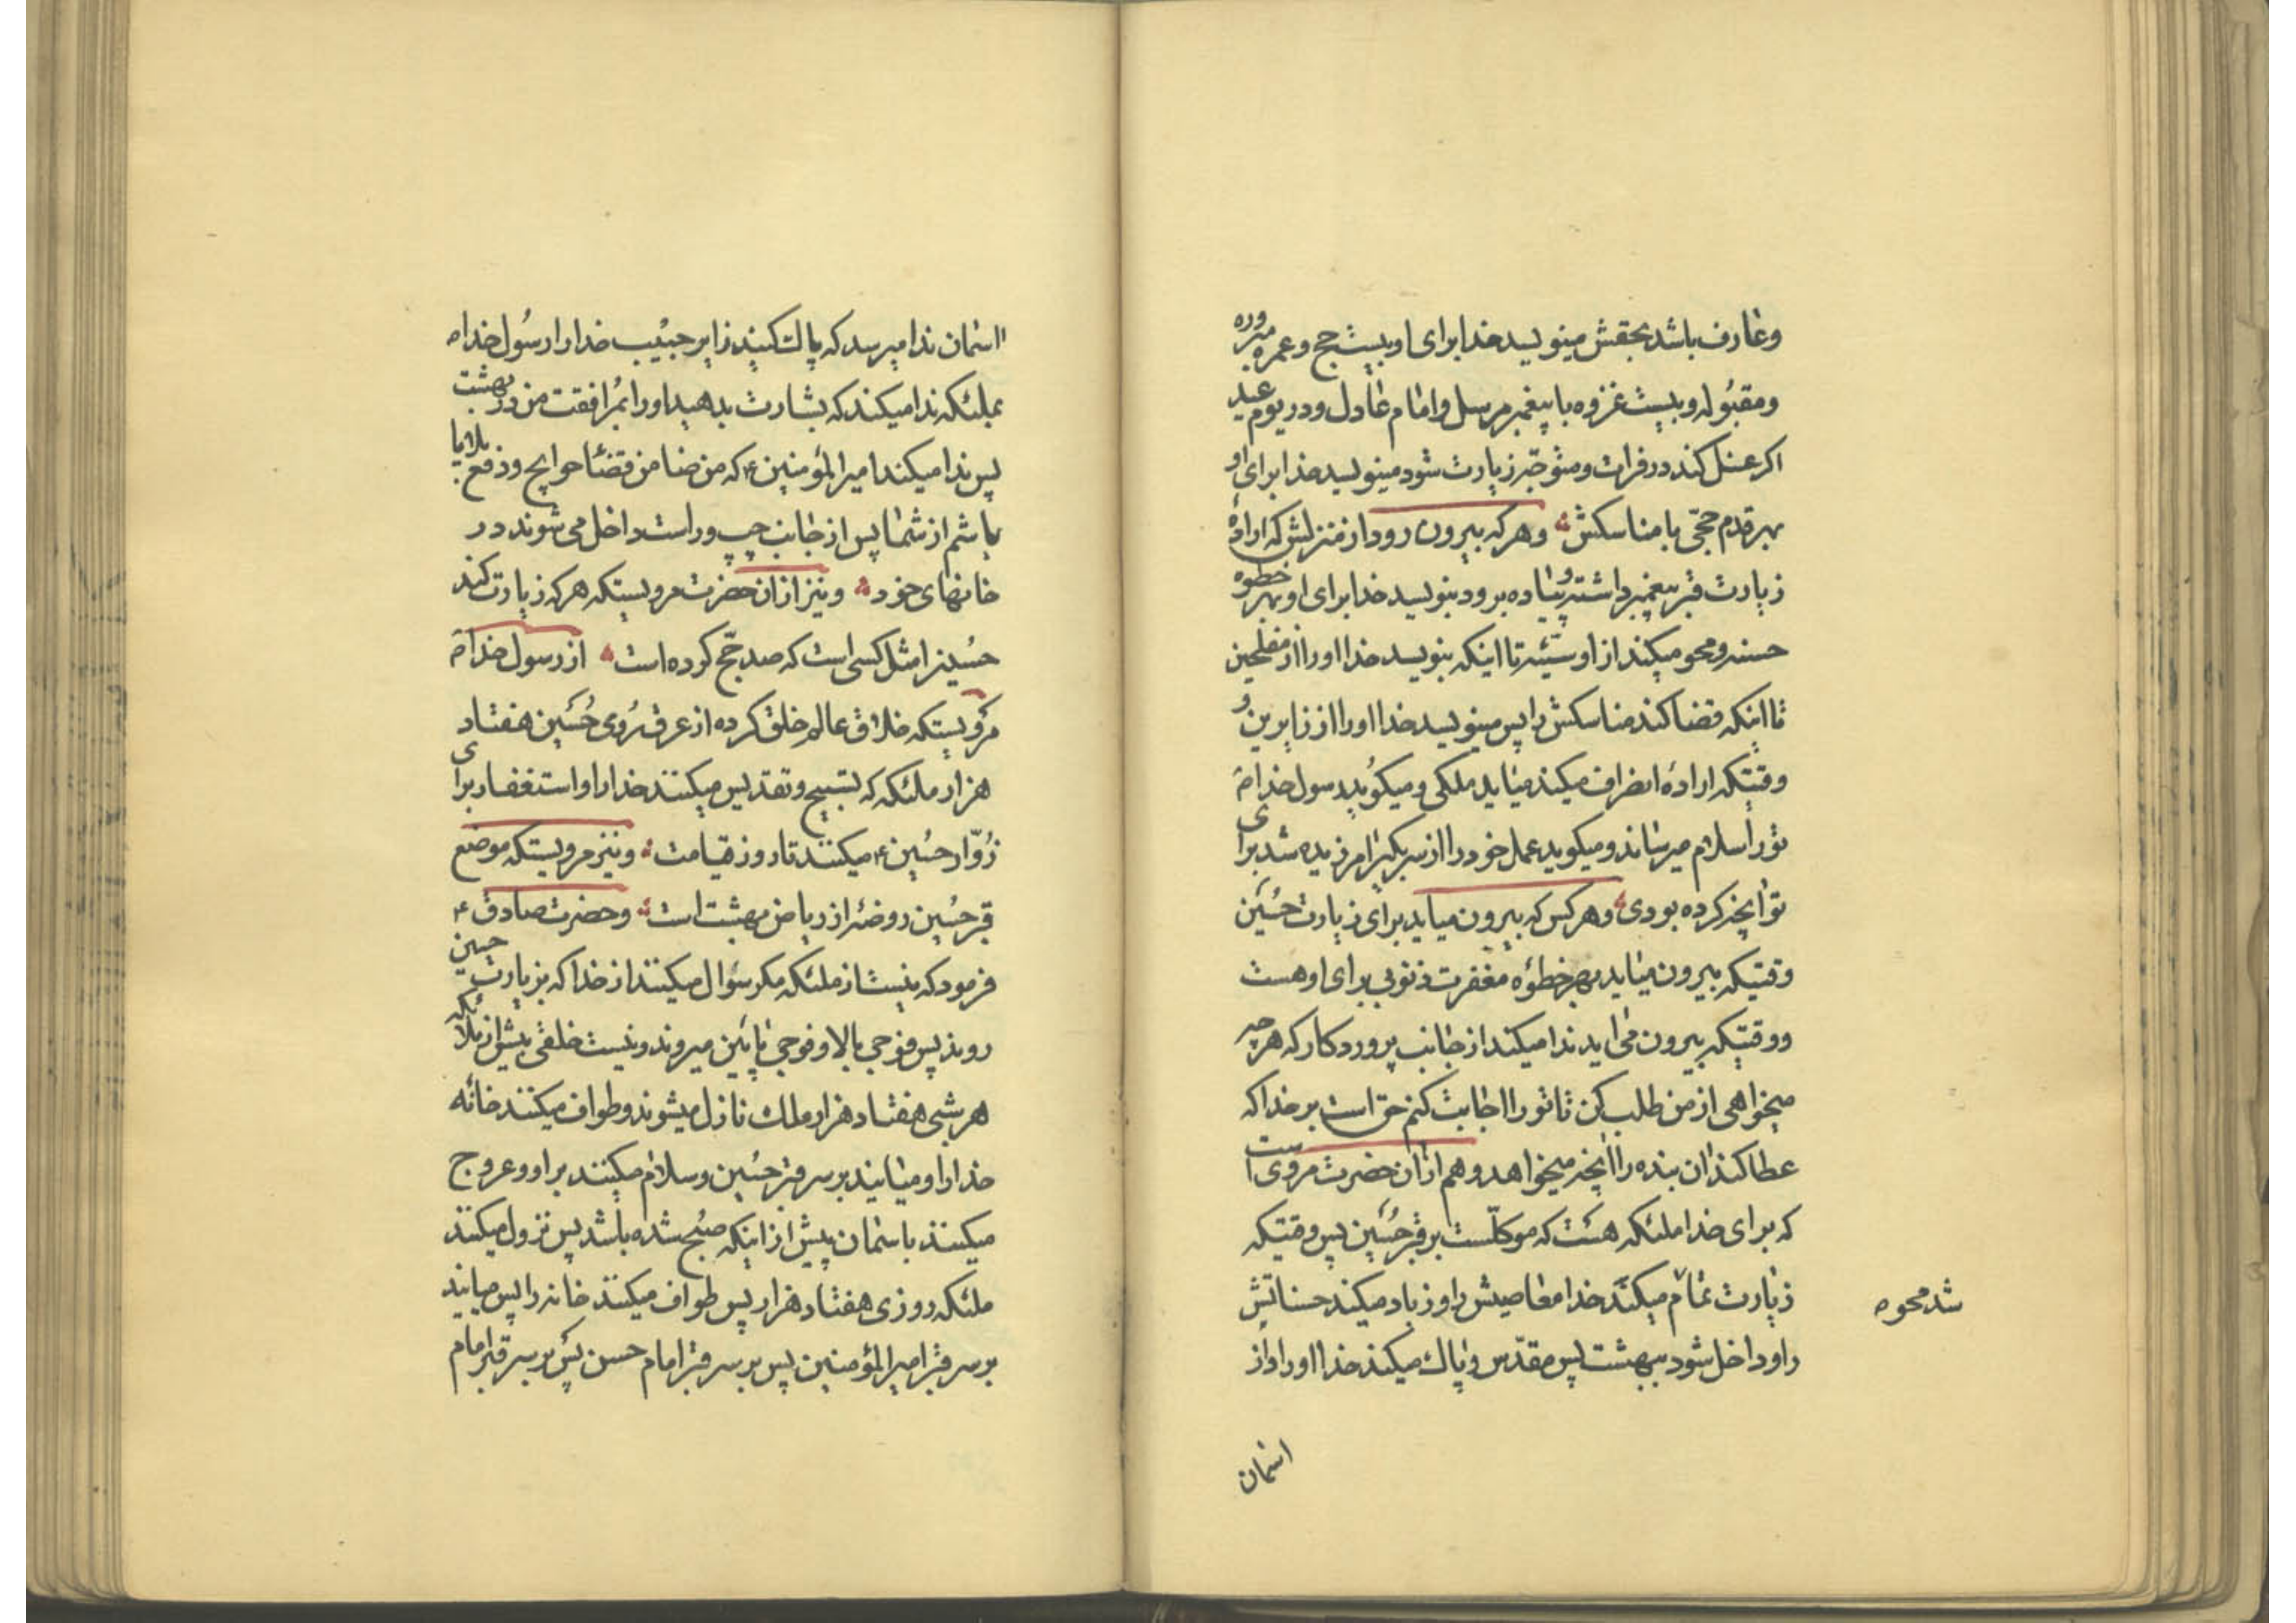 وعارف باشد بحقش مینویسد خدا برای او بیست حج وعمره مبروره
ومقبوله وبیست غزوه با پیغمبر مرسل وامام عادل ودر یوم عید
اکر غسل کند در فرات ومتوجه زیارت شود مینویسد خدا برای او
بهر قدم حجّی با مناسکش وهر که بیرون رود از منزلش که ارادهٔ
زیارت قبر پیغمبر داشته وپیاده برود بنویسد خدا برای او بهر خطوه
حسنه ومحو میکند از او سیّئه تا اینکه بنویسد خدا او را از مفلحین
تا اینکه قضا کند مناسکش را پس مینویسد خدا او را از زایرین و
وقتیکه ارادهٔ انصراف میکند میاید ملکی ومیکوید رسول خدا ص
تورا سلام میرساند ومیکوید عمل خود را از سر بکیر امرزیده شد برای
تو انچه کرده بودی وهر کس که بیرون میاید برای زیارت حسین
وقتیکه بیرون میاید بهر خطوه مغفرت ذنوبی برای او هست
ووقتیکه بیرون می اید ندا میکند از جانب پروردکار که هر چه
میخواهی از من طلب کن تا تو را اجابت کنم حق است بر خدا که
عطا کند ان بنده را انچه میخواهد وهم از ان حضرت مروی است
که برای خدا ملئکه هست که موکلّست بر قبر حسین پس وقتیکه
زیارت تمام میکند خدا معاصیش را وزیاد میکند حسناتش
شد محو ه
را وداخل شود ببهشت پس مقدّس وپاك میکند خدا او را واز
اسمان
اسمان ندا میرسد که پاك کنید زایر حبیب خدا را رسول خدا ص
بملئکه ندا میکند که بشارت بدهید او را بمرافقت من در بهشت
پس ندا میکند امیر المؤمنین ع که من ضامن قضاء حوایج ودفع بلایا
باشم از شما پس از جانب چپ وراست داخل می شوند در
خانهای خود ونیز از ان حضرت مرویستکه هر که زیارت کند
حسین را مثل کسی است که صد حجّ کرده است از رسول خدا ص
مرویستکه خلاق عالم خلق کرده از عرق روی حسین هفتاد
هزار ملئکه که تسبیح وتقدیس میکنند خدا را واستغفار برای
زوّار حسین ع میکنند تا روز قیامت ونیز مرویستکه موضع
قبر حسین روضهٔ از ریاض بهشت است وحضرت صادق ع
فرمود که نیست از ملئکه مکر سؤال میکنند از خدا که بزیارت حسین
روند پس فوجی بالا وفوجی پائین میروند ونیست خلقی بیش از ملائکه
هر شبی هفتاد هزار ملك نازل میشوند وطواف میکنند خانه
خدا را ومیایند بر سر قبر حسین وسلام میکنند بر او وعروج
میکنند باسمان پیش از اینکه صبح شده باشد پس نزول میکنند
ملئکه روزی هفتاد هزار پس طواف میکنند خانه را پس میایند
بر سر قبر امیر المؤمنین پس بر سر قبر امام حسن پس بر سر قبر امام